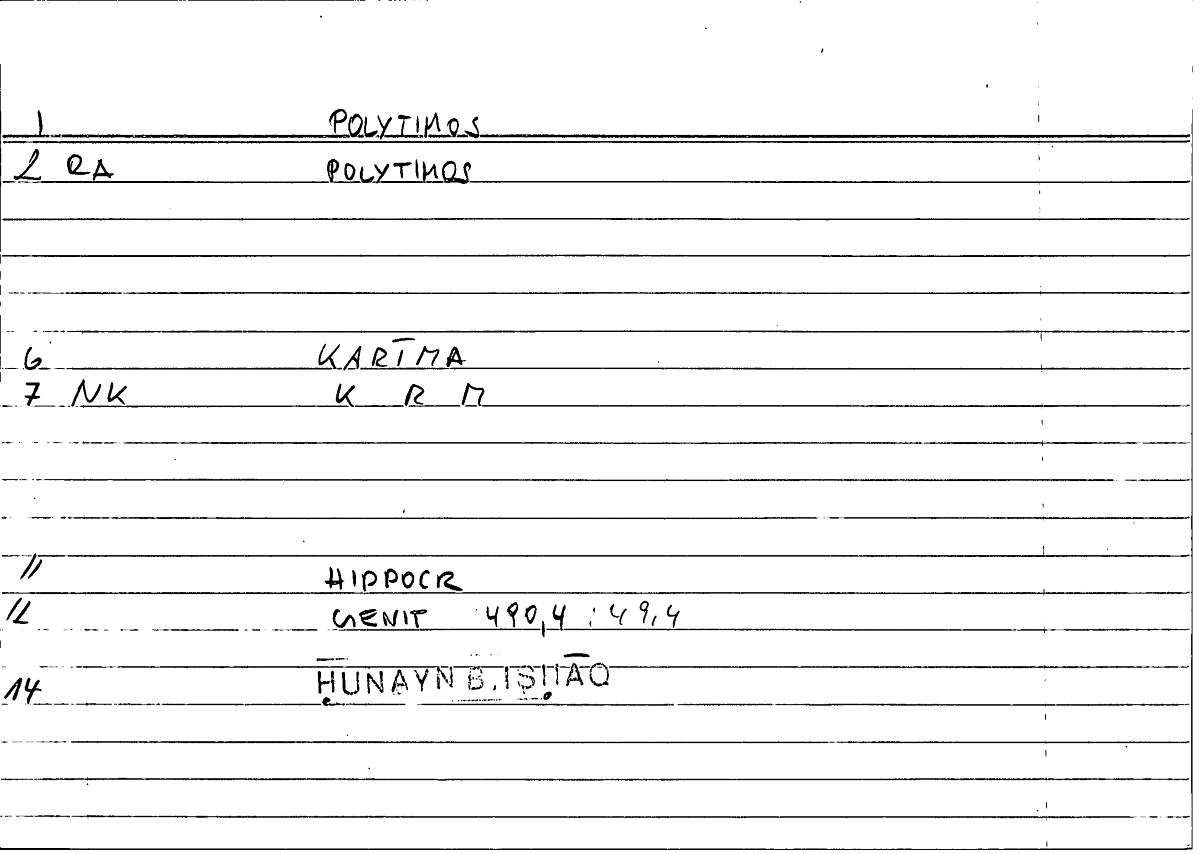 1 POLYTIMOS
2 RA POLYTIMOS
6 KARĪMA
7 NK K R M
11 HIPPOCR
12 GENIT 490,4 : 49,4
14 ḤUNAYN B. ISḤĀQ